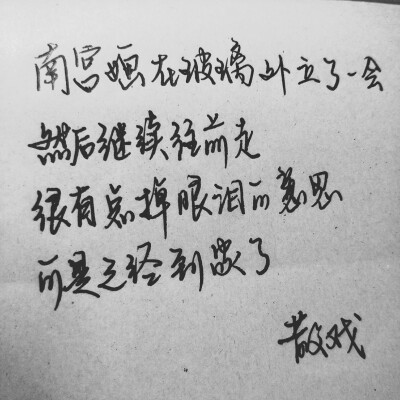 南宫嫿在玻璃外立了一会
然后继续往前走
很有点掉眼泪的意思
可是已经到家了
散戏